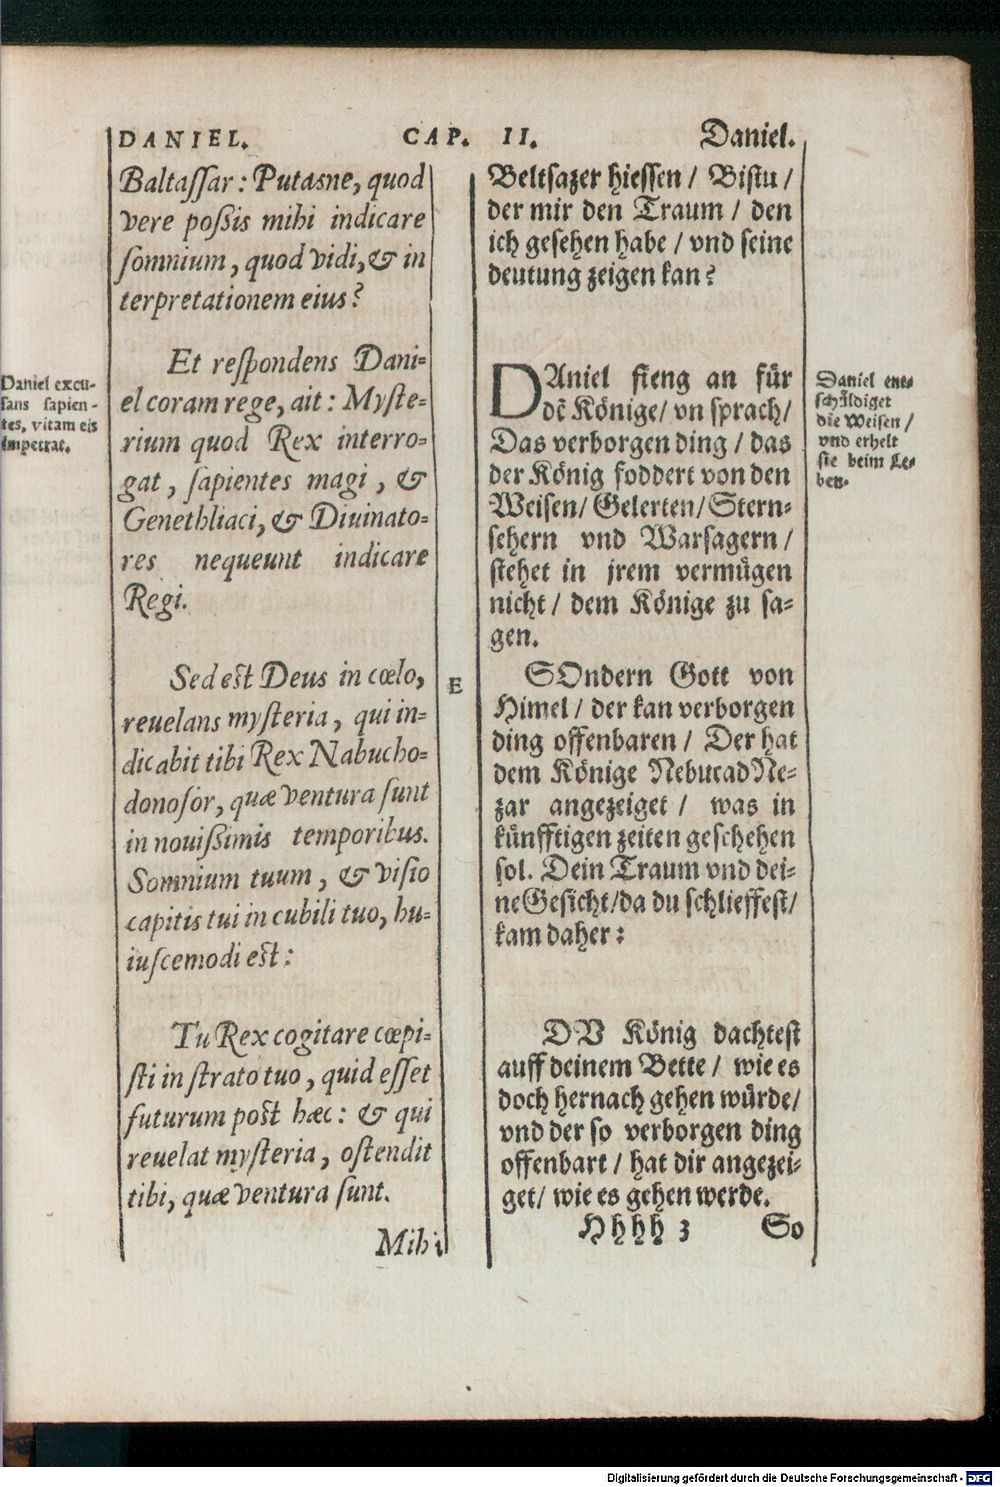 DANIEL. CAP. II. Daniel.
Baltaſſar: Putasne, quod
vere poſsis mihi indicare
ſomnium, quod vidi, & in
terpretationem eius?
Daniel excu-
ſans ſapien-
tes, vitam eis
impetrat.
Et reſpondens Dani-
el coram rege, ait: Myſte-
rium quod Rex interro-
gat, ſapientes magi, &
Genethliaci, & Diuinato-
res nequeunt indicare
Regi.
Sed eſt Deus in cœlo,
reuelans myſteria, qui in-
dicabit tibi Rex Nabucho-
donoſor, quæ ventura ſunt
in nouiſsimis temporibus.
Somnium tuum, & viſio
capitis tui in cubili tuo, hu-
iuſcemodi eſt:
Tu Rex cogitare cœpi-
ſti in ſtrato tuo, quid eſſet
futurum poſt hæc: & qui
reuelat myſteria, oſtendit
tibi, quæ ventura ſunt.
Mihi
E
Beltſazer hieſſen / Biſtu /
der mir den Traum / den
ich geſehen habe / vnd ſeine
deutung zeigen kan?
DAniel fieng an für
dẽ Könige / vñ ſprach /
Das verborgen ding / das
der König foddert von den
Weiſen / Gelerten / Stern-
ſehern vnd Warſagern /
ſtehet in jrem vermügen
nicht / dem Könige zu ſa-
gen.
SOndern Gott von
Himel / der kan verborgen
ding offenbaren / Der hat
dem Könige NebucadNe-
zar angezeiget / was in
künfftigen zeiten geſchehen
ſol. Dein Traum vnd dei-
ne Geſicht / da du ſchlieffeſt /
kam daher:
DV König dachteſt
auff deinem Bette / wie es
doch hernach gehen würde /
vnd der ſo verborgen ding
offenbart / hat dir angezei-
get / wie es gehen werde.
Hhhh 3 So
Daniel ent-
ſchüldiget
die Weiſen /
vnd erhelt
ſie beim Le-
ben.
Digitalisierung gefördert durch die Deutsche Forschungsgemeinschaft - DFG